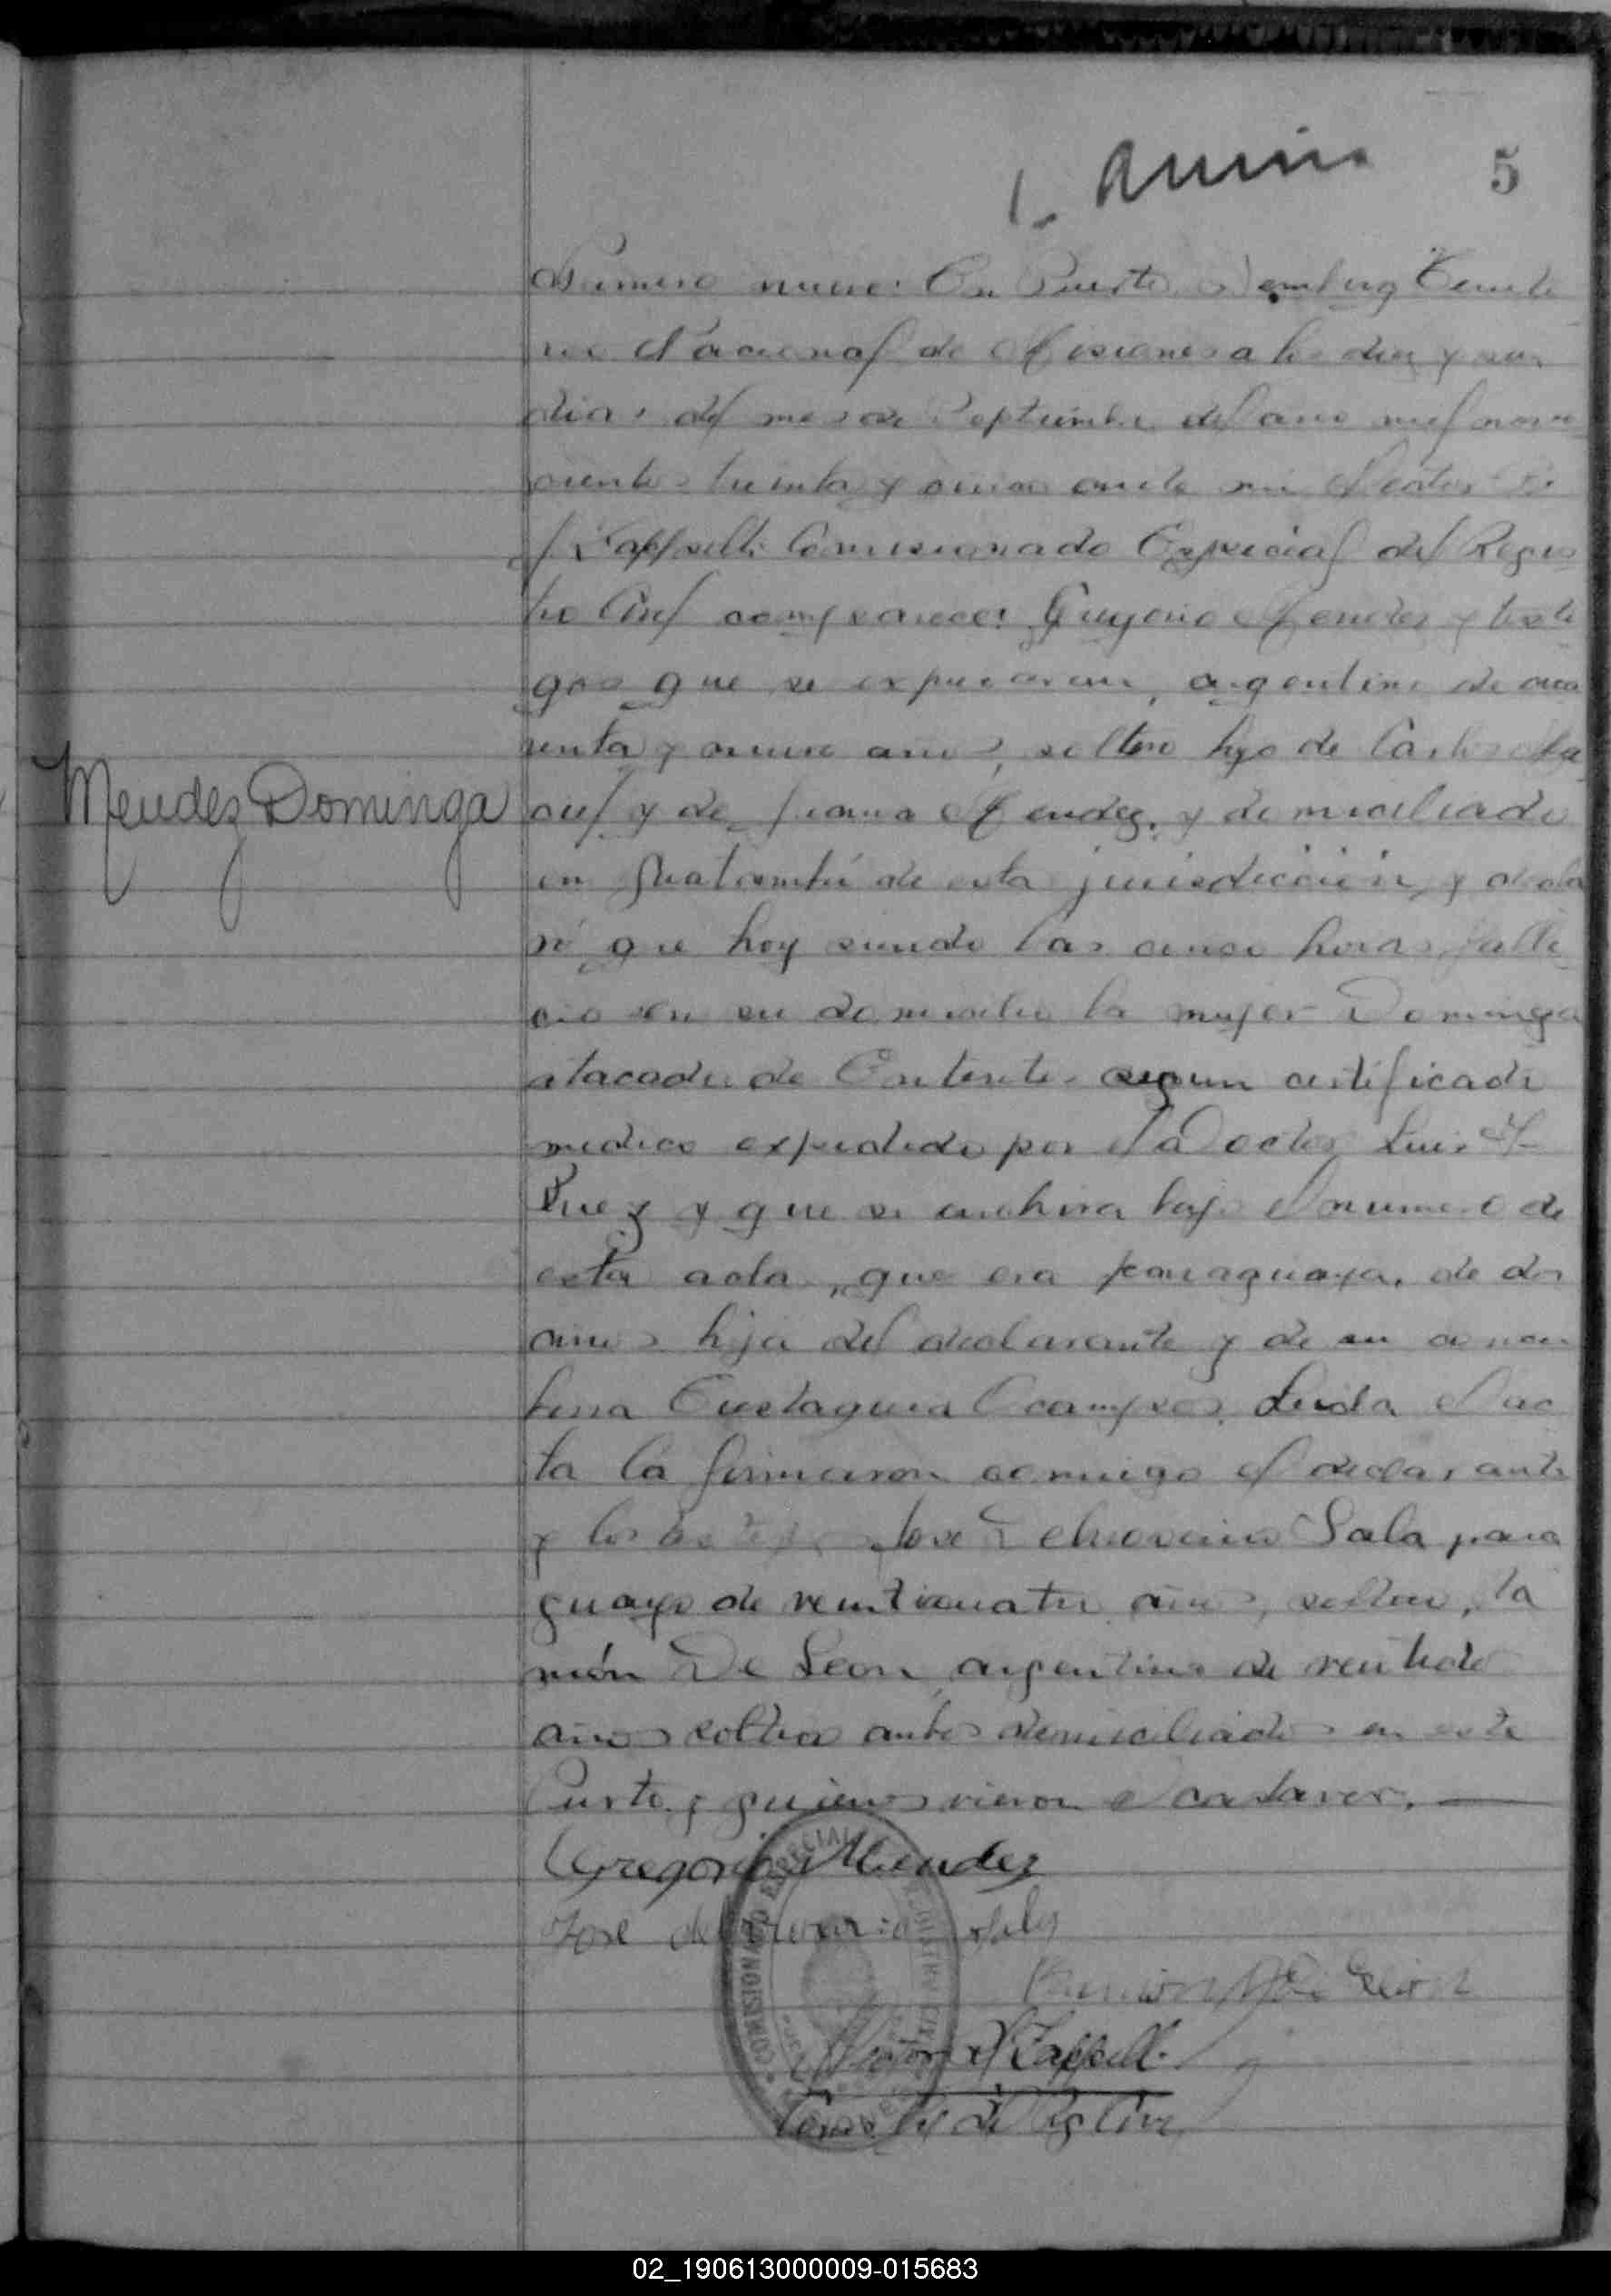 5
Numero nueve: En Puerto Territo
rio Nacional de Misiones a los diez y
dias del mes de Septiembre del año mil nove
cientos treinta y cinco ante mi Nestor
J Zappelli Comisionado Especial del Regis
tro Civil comparece: Gregorio Mendez y testi
gos que se expresaran, argentino de cua
renta y nueve años, soltero hijo de Carlos
y de Juana Mendez, y domiciliado
en Guatambú de esta jurisdiccion, y decla
ró que hoy siendo las cinco horas falle
cio en su domicilio la mujer Dominga
Mendez Dominga
atacada de Enteritis segun certificado
medico expedido por el Doctor Luis
y que se archiva bajo el numero de
esta acta, que era paraguaya, de dos
años hija del declarante y de su concu
bina Eustaquia Ocampos. Leida el ac
ta la firmaron conmigo el declarante
y los testigos Jose Sala para
guayo de veinticuatro años, soltero, Ra
món De Leon, argentino de veintidos
años soltero ambos domiciliados en este
Puerto, y quienes vieron el cadaver.
Gregorio Mendez
Jose del Sala
Ramon De Leon
COMISIONADO ESPECIAL
Nestor J Zappelli
Comis. Esp del Reg Civil
02_190613000009-015683